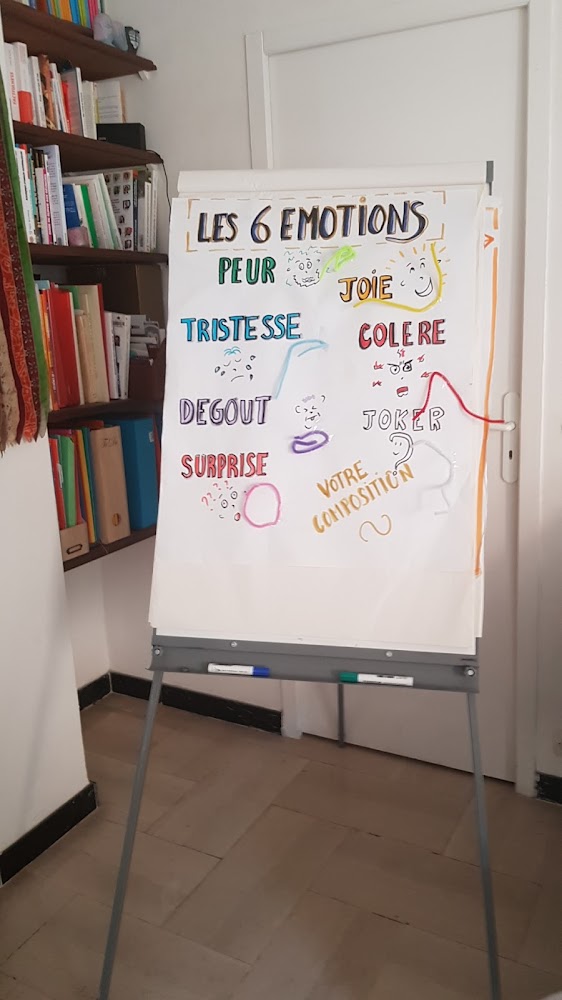 LES 6 EMOTIONS
PEUR
JOIE
TRISTESSE
COLERE
DEGOUT
JOKER
SURPRISE
VOTRE
COMPOSITION